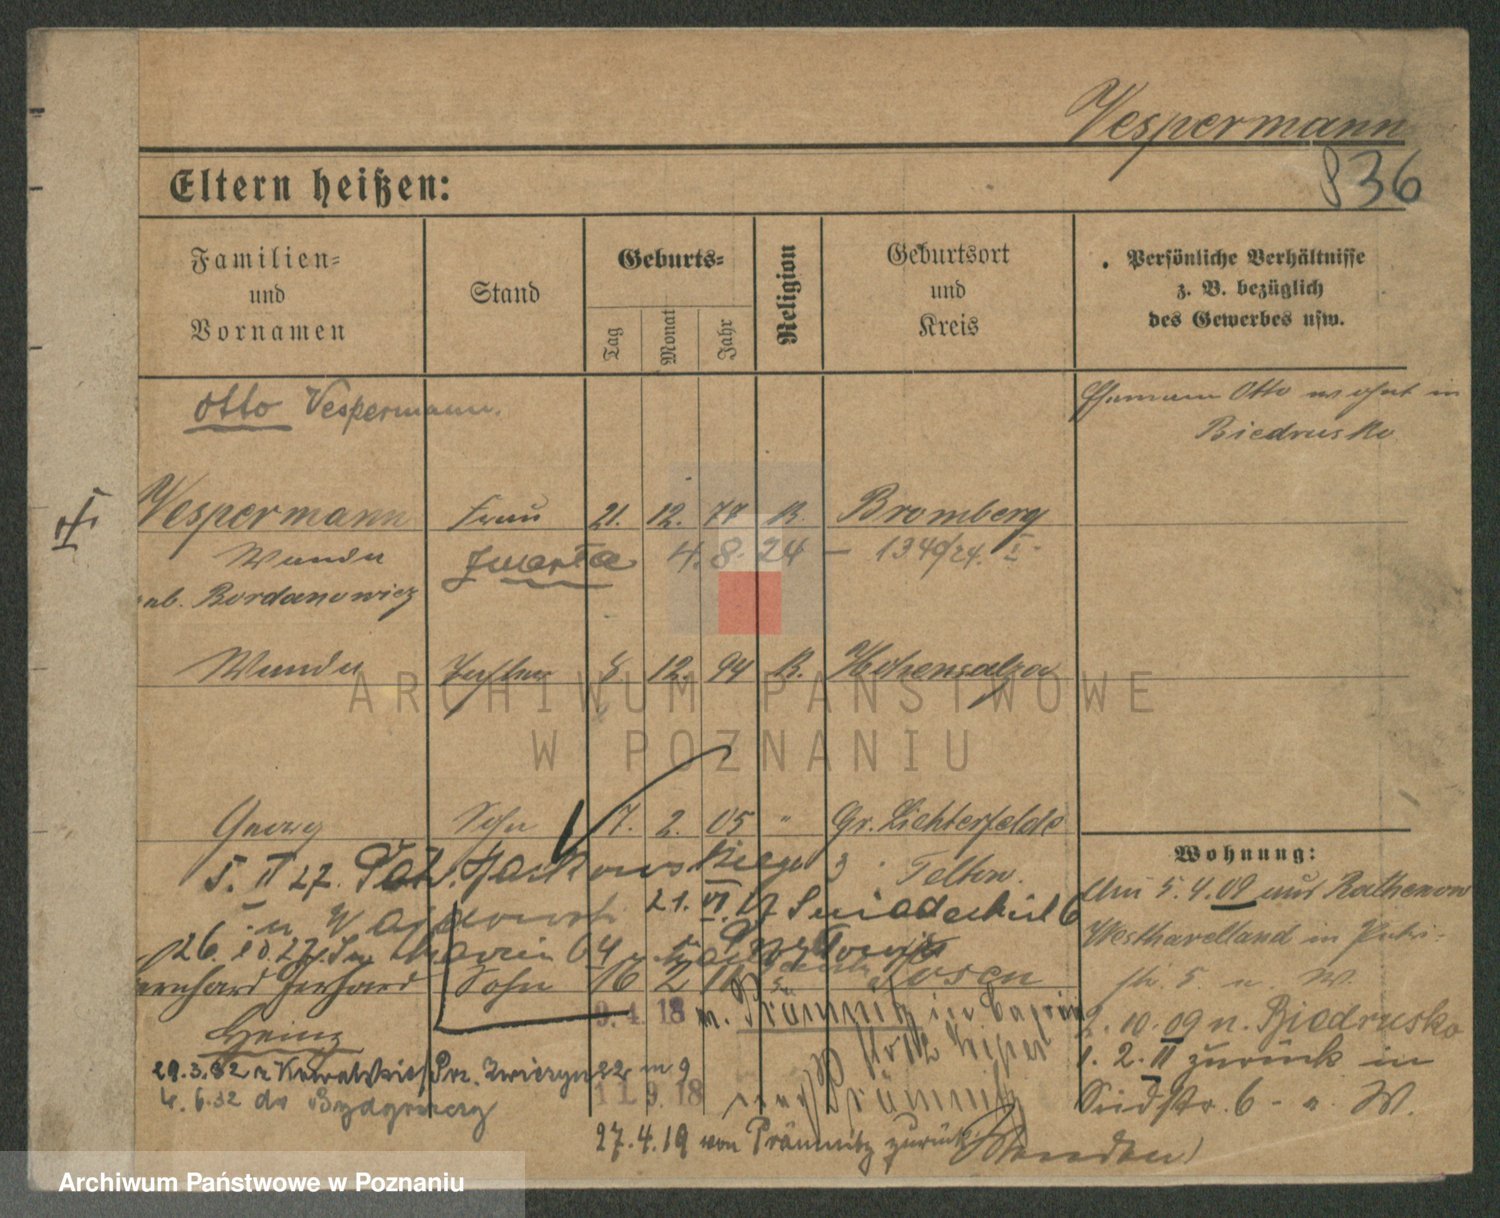 Vespermann
836
Eltern heißen:
Familien-
und
Vornamen
Stand
Geburts-
Tag
Monat
Jahr
Religion
Geburtsort
und
Kreis
Persönliche Verhältnisse
z. B. bezüglich
des Gewerbes usw.
Otto Vespermann.
Ehemann Otto wohnt in
Biedrusko
Vespermann Frau 21. 12. 77 K. Bromberg
Wanda
zmarła 4. 8. 24 – 1340/24. I
geb. Bordanowicz
Wanda Tochter 12. 94 K. Hohensalza
Georg Sohn 7. 2. 05 " Gr. Lichterfelde
Teltow.
Wohnung:
5. II 27.
21. VI. 27 Śniadeckich 6
Am 5. 4. 09 aus Rathenow
Westhavelland in
str. 5. u. W.
26. 10 27.
Bernhard Gerhard Sohn 16 2 Posen
Heinz
9. 4. 18 n. Prämnitz
2. 10. 09 n. Biedrusko
1. 2. 11 zurück in
Südstr. 6 - u. W.
29.3.32 Pw. Zwierzyn 22 m 9
4. 6. 32 do Bydgoszczy
11. 9. 18
nach Prämnitz
27. 4. 19 von Prämnitz zurück
ARCHIWUM PAŃSTWOWE
W POZNANIU
Archiwum Państwowe w Poznaniu